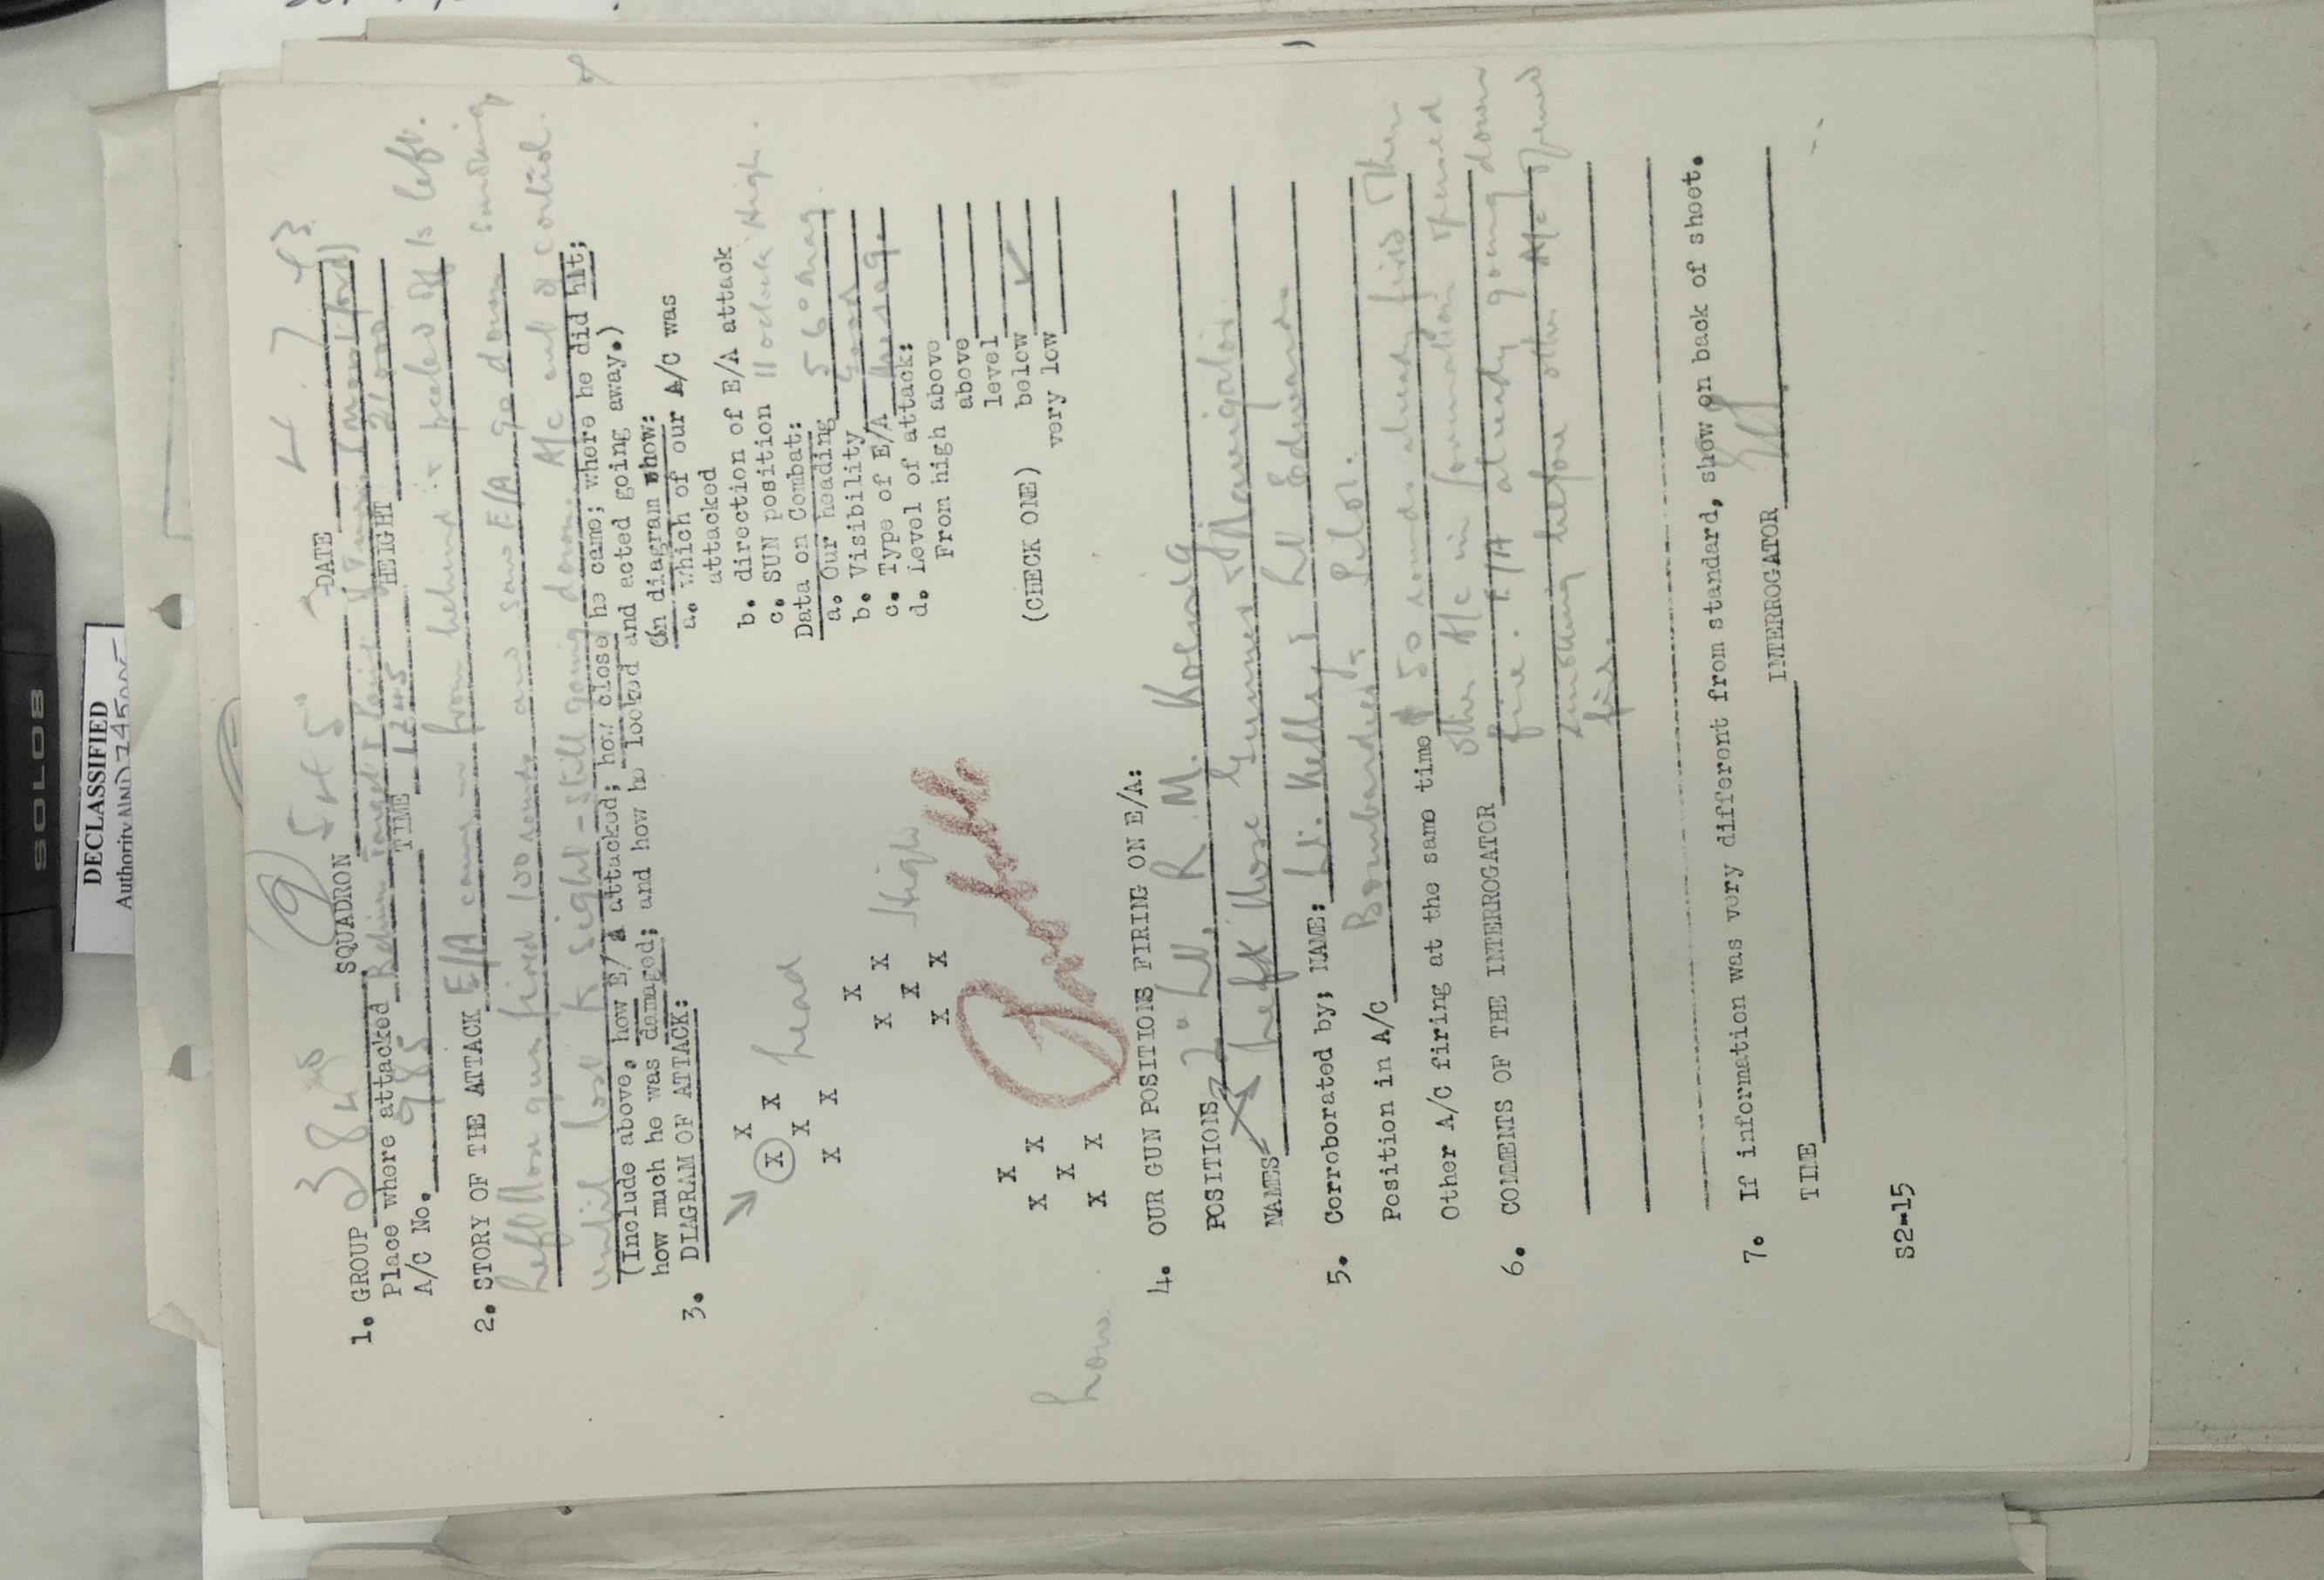 SOLOB
DECLASSIFIED
Authority NND 745005
384
1. GROUP SQUADRON 545 DATE 4 7 43
Place where attacked Before target HEIGHT 21000
A/C No. 985 TIME 1245
2. STORY OF THE ATTACK E/A came in from behind peeled off to left.
Left Nose gun fired 100 rounds and saw E/A go down smoking
until lost to sight - still going down. A/c out of control.
(Include above, how E/A attacked; how close he came; where he did hit;
how much he was damaged; and how he looked and acted going away.)
3. DIAGRAM OF ATTACK:
(On diagram show:
a. which of our A/C was
attacked
b. direction of E/A attack
c. SUN position 11 oclock High.
Data on Combat:
a. Our heading 56° mag.
b. Visibility Good
c. Type of E/A Me 109.
d. Level of attack:
From high above
above
level
below ✓
very low
(CHECK ONE)
X
X X
X
X X
lead
X
X X
X
X X
High
X
X X
X
X X
Low
Probable
4. OUR GUN POSITIONS FIRING ON E/A:
POSITIONS Lt. R. M. Koenig
NAMES Left Nose Gunner + Navigator.
5. Corroborated by; NAME: Lt. Kelly, Lt Edwards
Position in A/C Bombardier, Pilot.
Other A/C firing at the same time 50 rounds already fired then
other A/c in formation opened
6. COMMENTS OF THE INTERROGATOR fire. E/A already going down
smoking before other A/c opened
fire.
7. If information was very different from standard, show on back of sheet.
TIME INTERROGATOR
S2-15